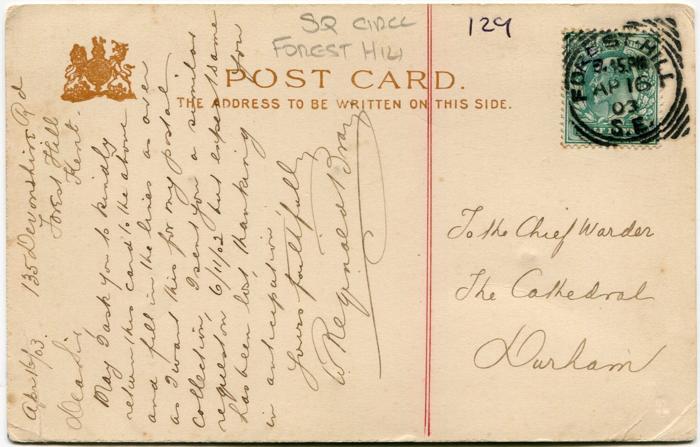 SQ CIRCL
FOREST HILL
129
POST CARD.
THE ADDRESS TO BE WRITTEN ON THIS SIDE.
FOREST HILL
8.45PM
AP 16
03
S.E.
135 Devonshire Rd
Forest Hill
Kent.
April 16/03.
Dear Sir
May I ask you to kindly
return this card to the above
and fill in the lines as over
as I want this for my postal
collection, I sent you a similar
request on 6/11/02 but expect same
has been lost, thanking you
in anticipation,
Yours faithfully
W Reginald Bray
To the Chief Warder
The Cathedral
Durham